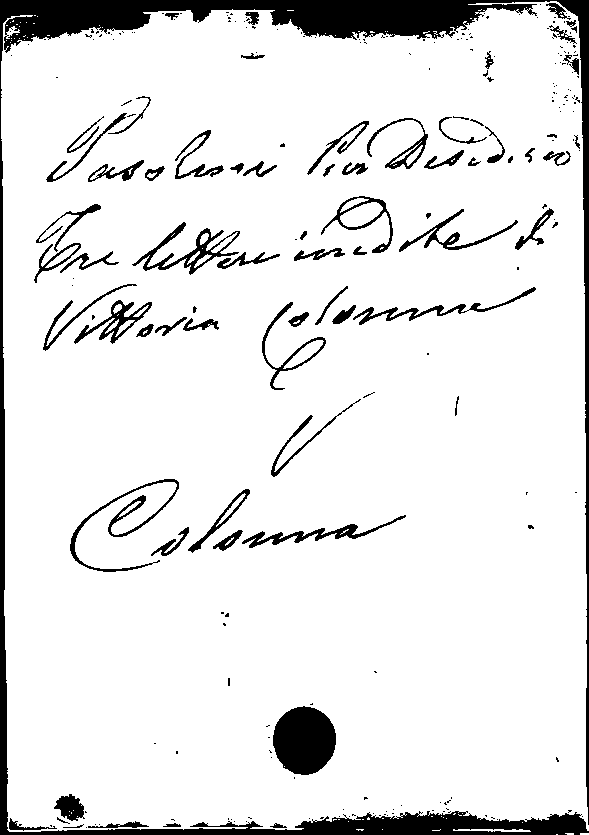 Pasolini Pier Desiderio
Tre lettere inedite di
Vittoria Colonna
V
Colonna